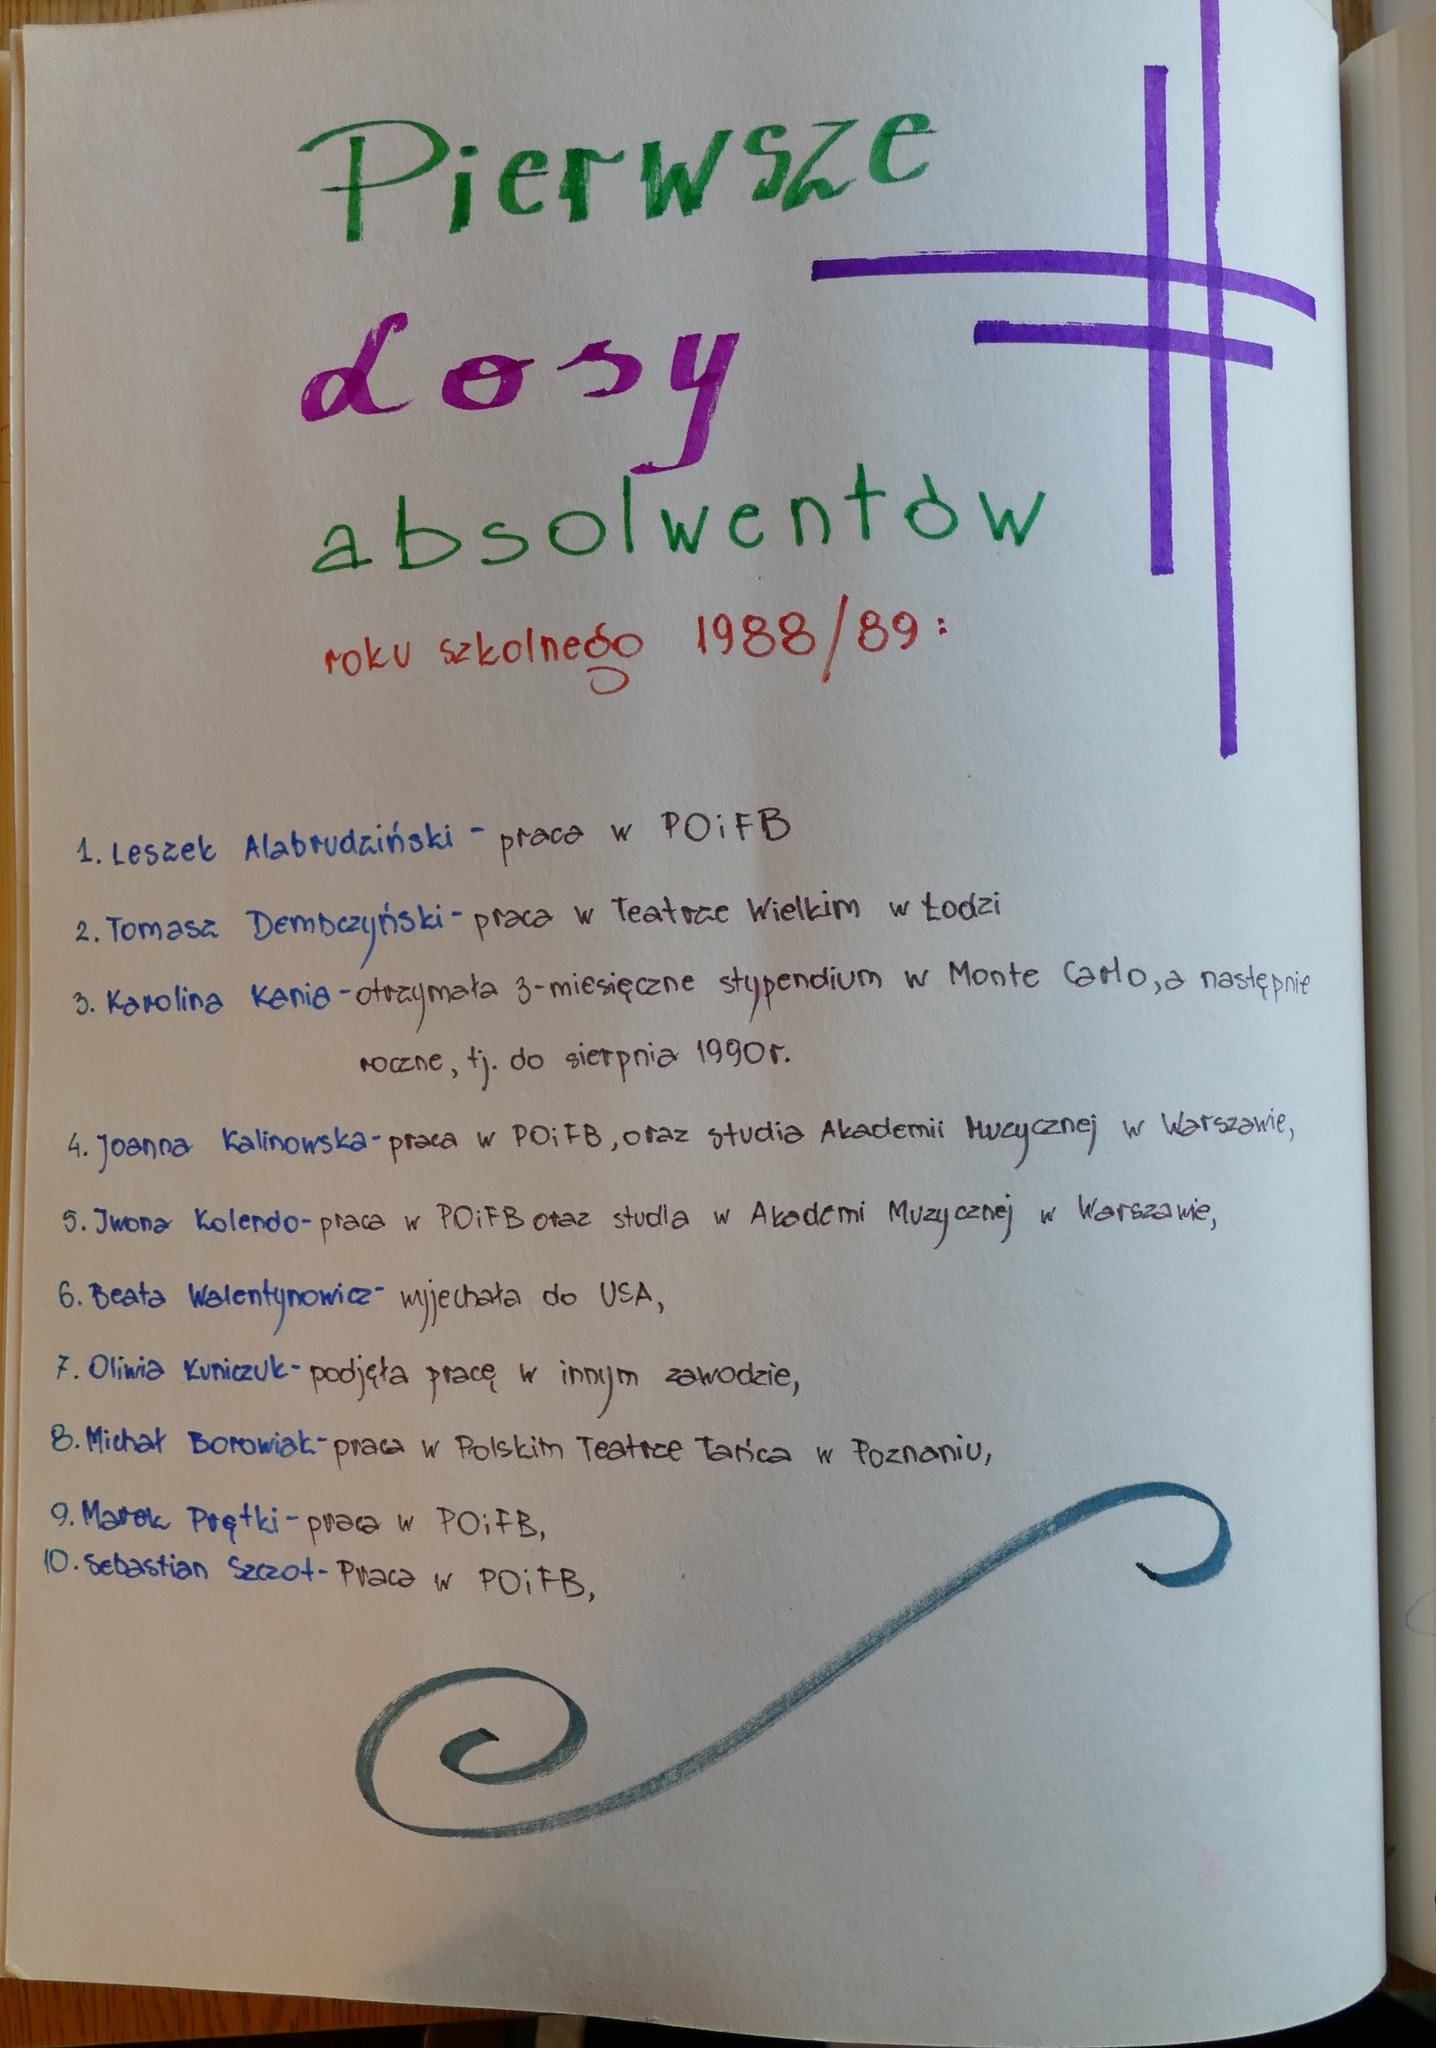 Pierwsze
Losy
absolwentów
roku szkolnego 1988/89:
1. Leszek Alabrudziński - praca w POiFB
2. Tomasz Dembczyński - praca w Teatrze Wielkim w Łodzi
3. Karolina Kania - otrzymała 3-miesięczne stypendium w Monte Carlo, a następnie
roczne, tj. do sierpnia 1990r.
4. Joanna Kalinowska - praca w POiFB, oraz studia Akademii Muzycznej w Warszawie,
5. Iwona Kolendo - praca w POiFB oraz studia w Akademi Muzycznej w Warszawie,
6. Beata Walentynowicz - wyjechała do USA,
7. Oliwia Kuniczuk - podjęła pracę w innym zawodzie,
8. Michał Borowiak - praca w Polskim Teatrze Tańca w Poznaniu,
9. Marek Prętki - praca w POiFB,
10. Sebastian Szczot - Praca w POiFB,